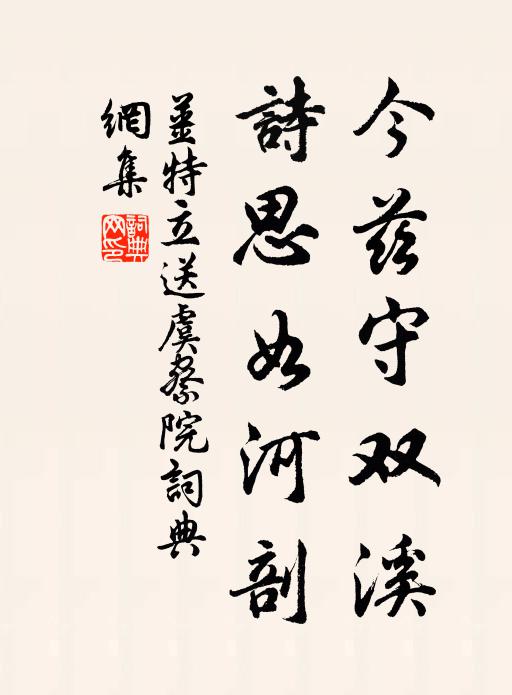 今茲守双溪
詩思如河剖
姜特立送虞察院詞典
網集
詞典網印